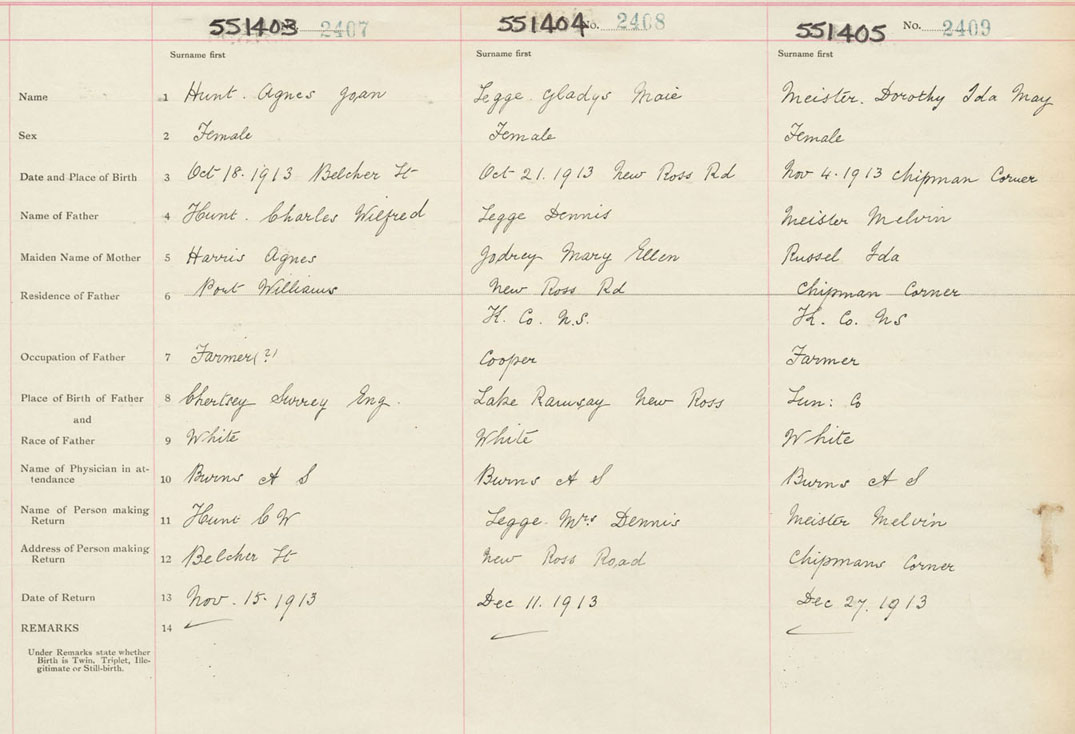 551403 2407 551404 No. 2408 551405 No. 2409
Surname first Surname first Surname first
Name 1 Hunt. Agnes Joan Legge Gladys Maie Meister. Dorothy Ida May
Sex 2 Female Female Female
Date and Place of Birth 3 Oct 18. 1913 Belcher St Oct 21. 1913 New Ross Rd Nov 4. 1913 Chipman Corner
Name of Father 4 Hunt. Charles Wilfred Legge Dennis Meister Melvin
Maiden Name of Mother 5 Harris Agnes Godrey Mary Ellen Russel Ida
Residence of Father 6 Port Williams New Ross Rd Chipman Corner
K. Co. N.S. K. Co. NS
Occupation of Father 7 Farmer(?) Cooper Farmer
Place of Birth of Father 8 Chertsey Surrey Eng. Lake Ramsay New Ross Lun: Co
and
Race of Father 9 White White White
Name of Physician in at-
tendance 10 Burns A S Burns A S Burns A S
Name of Person making
Return 11 Hunt C W Legge Mrs Dennis Meister Melvin
Address of Person making
Return 12 Belcher St New Ross Road Chipmans Corner
Date of Return 13 Nov. 15. 1913 Dec 11. 1913 Dec 27. 1913
REMARKS 14
Under Remarks state whether
Birth is Twin, Triplet, Ille-
gitimate or Still-birth.